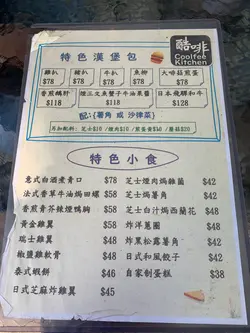 酷啡
Coolfee
Kitchen
特色漢堡包
雞扒 豬扒 牛扒 魚柳 大啡菇煎蛋
$78 $78 $78 $78 $78
香煎鵝肝 煙三文魚蟹子牛油果醬 日本飛驒和牛
$118 $128 $128
配:(薯角 或 沙律菜)
另加配料: 芝士$10 /煙肉$10 / 煎蛋黃$10 /蘑菇$20
特色小食
意式白酒煮青口 $78 芝士煙肉焗雜菌 $42
法式香草牛油焗田螺 $58 芝士焗薯角 $42
香煎青芥辣煙鴨胸 $58 芝士白汁焗西蘭花 $48
黃金雞翼 $48 炸洋蔥圈 $48
瑞士雞翼 $48 炸黑松露薯角 $48
椒鹽雞軟骨 $48 日式和風餃子 $42
泰式蝦餅 $46 自家制蛋糕 $38
日式芝麻炸雞翼 $45